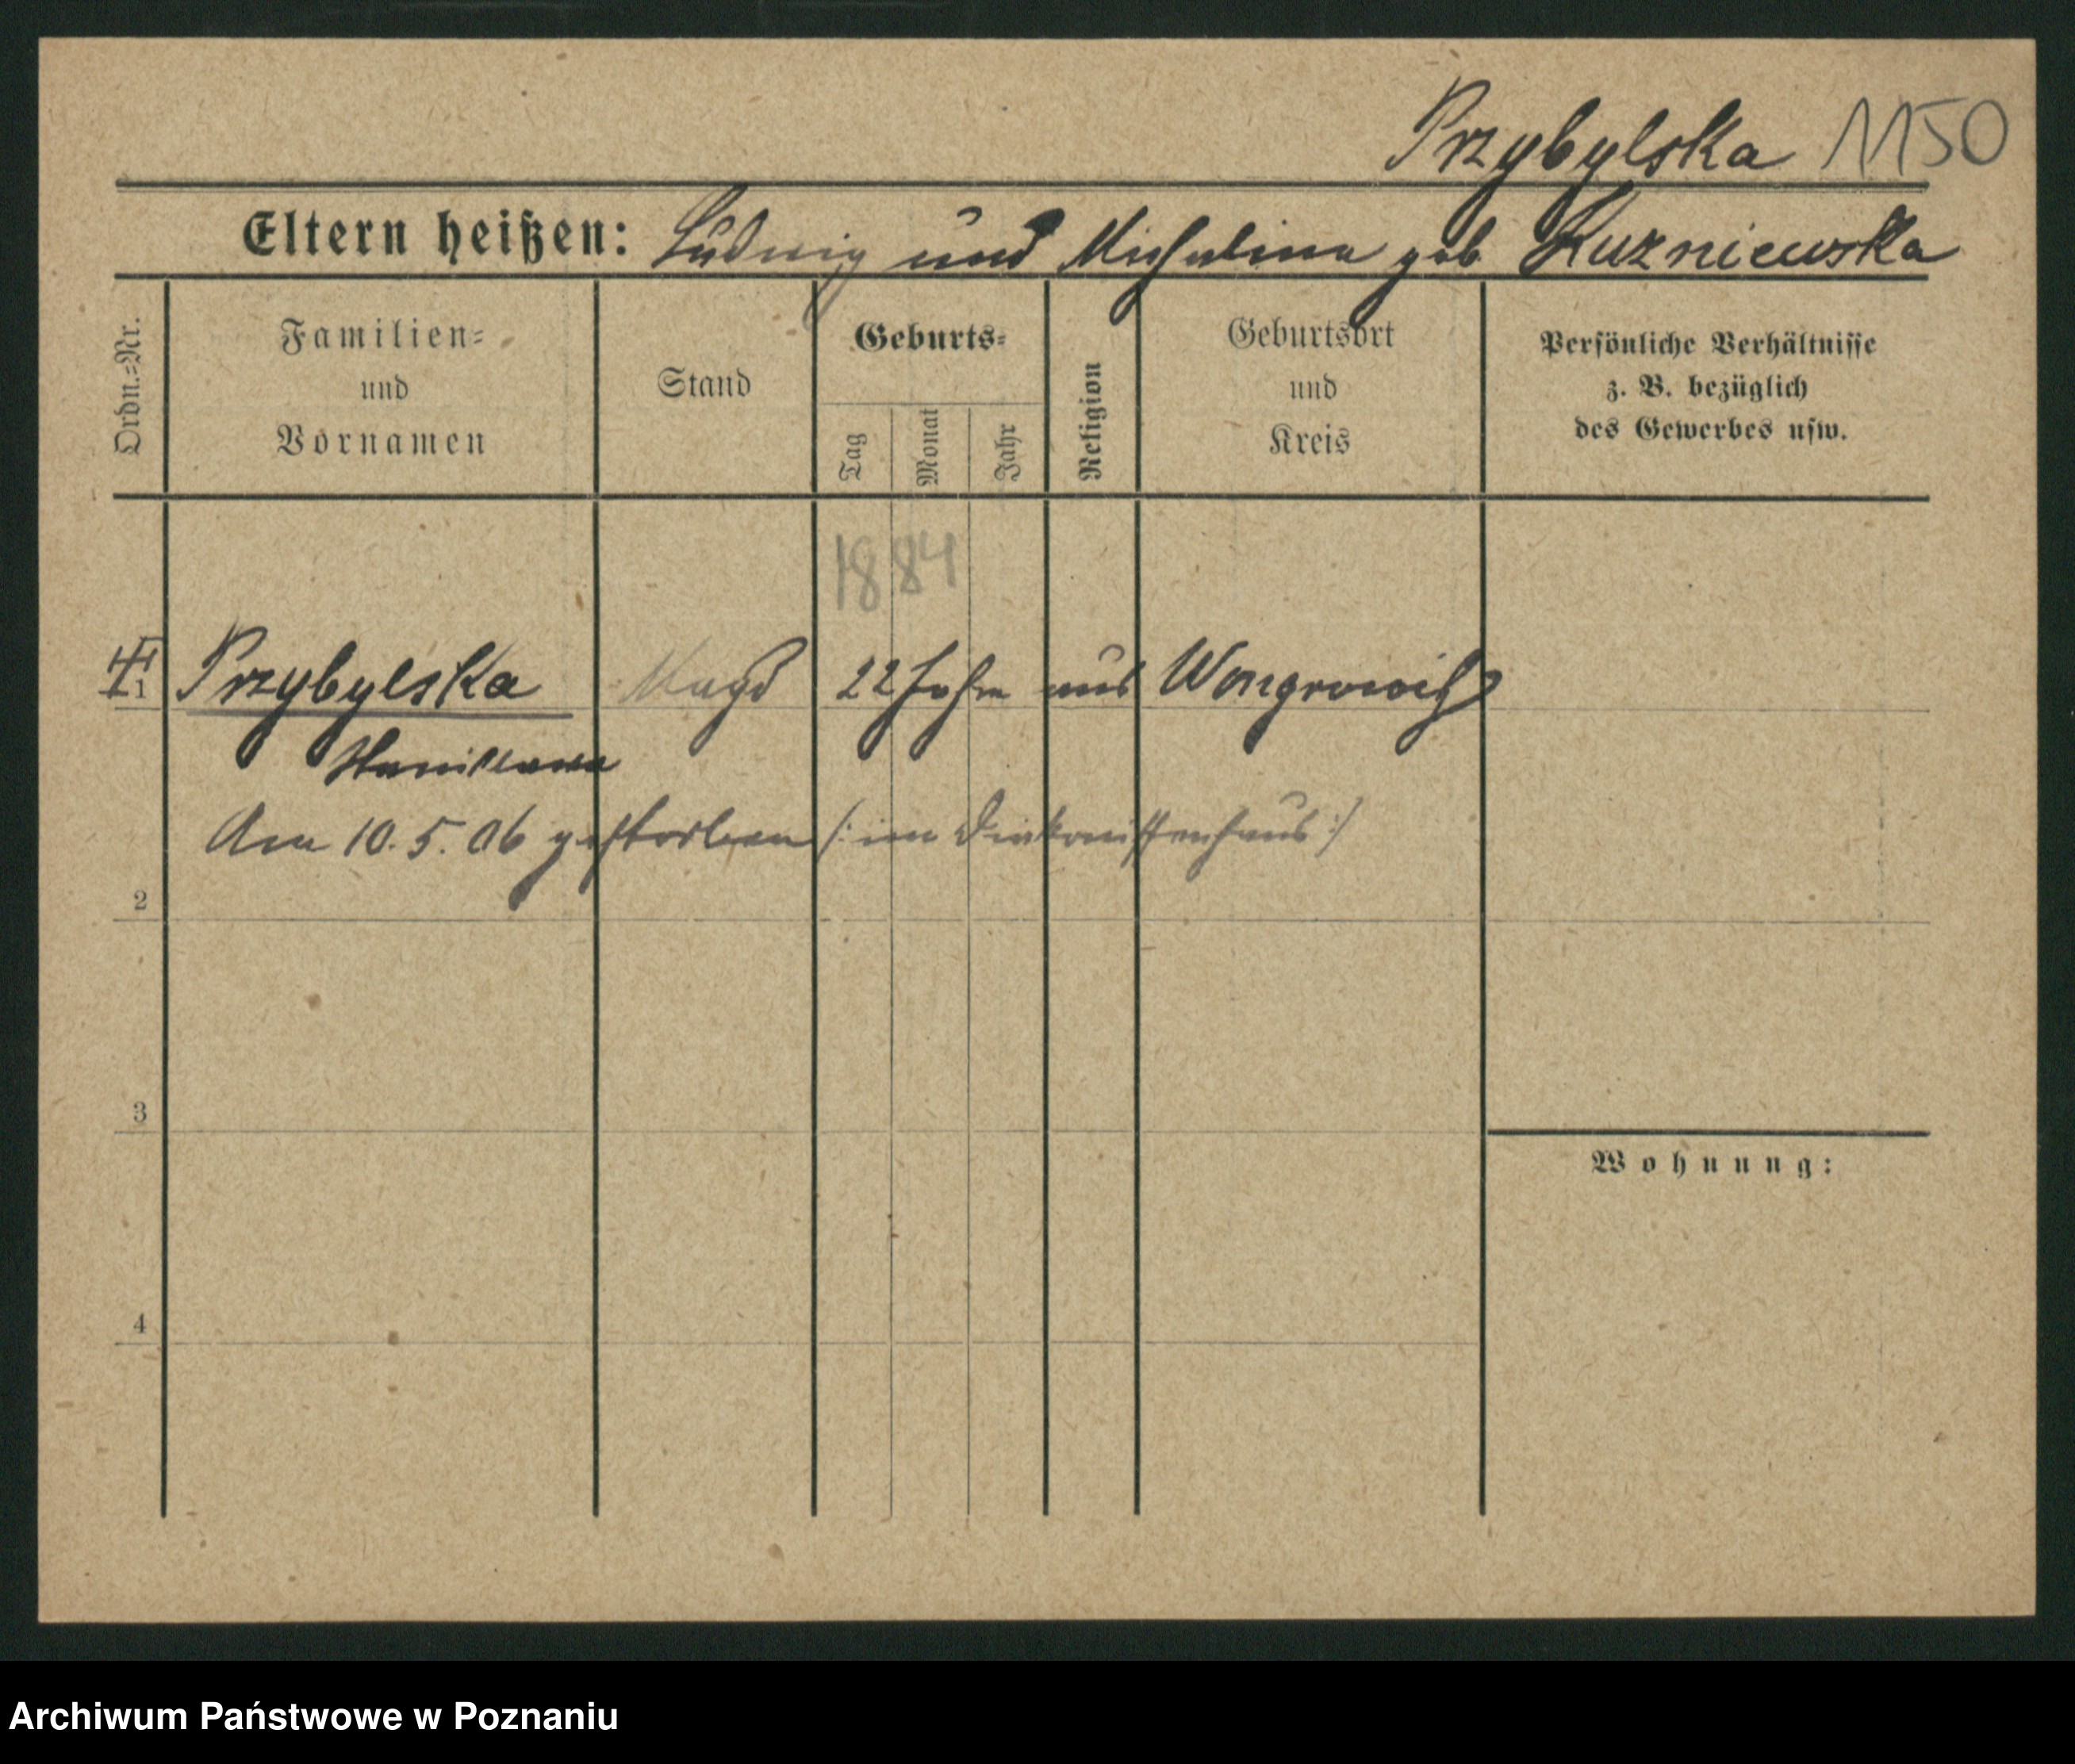 Przybylska 1150
Eltern heißen: Ludwig und Michalina geb Kuzniewska
Ordn.-Nr.
Familien-
und
Vornamen
Stand
Geburts-
Tag
Monat
Jahr
Religion
Geburtsort
und
Kreis
Persönliche Verhältnisse
z. B. bezüglich
des Gewerbes usw.
1884
1 Przybylska Magd 22 Jahre aus Wongrowitz
Stanislawa
Am 10.5.06 gestorben /: im Diakonissenhaus :/
2
3
Wohnung:
4
Archiwum Państwowe w Poznaniu